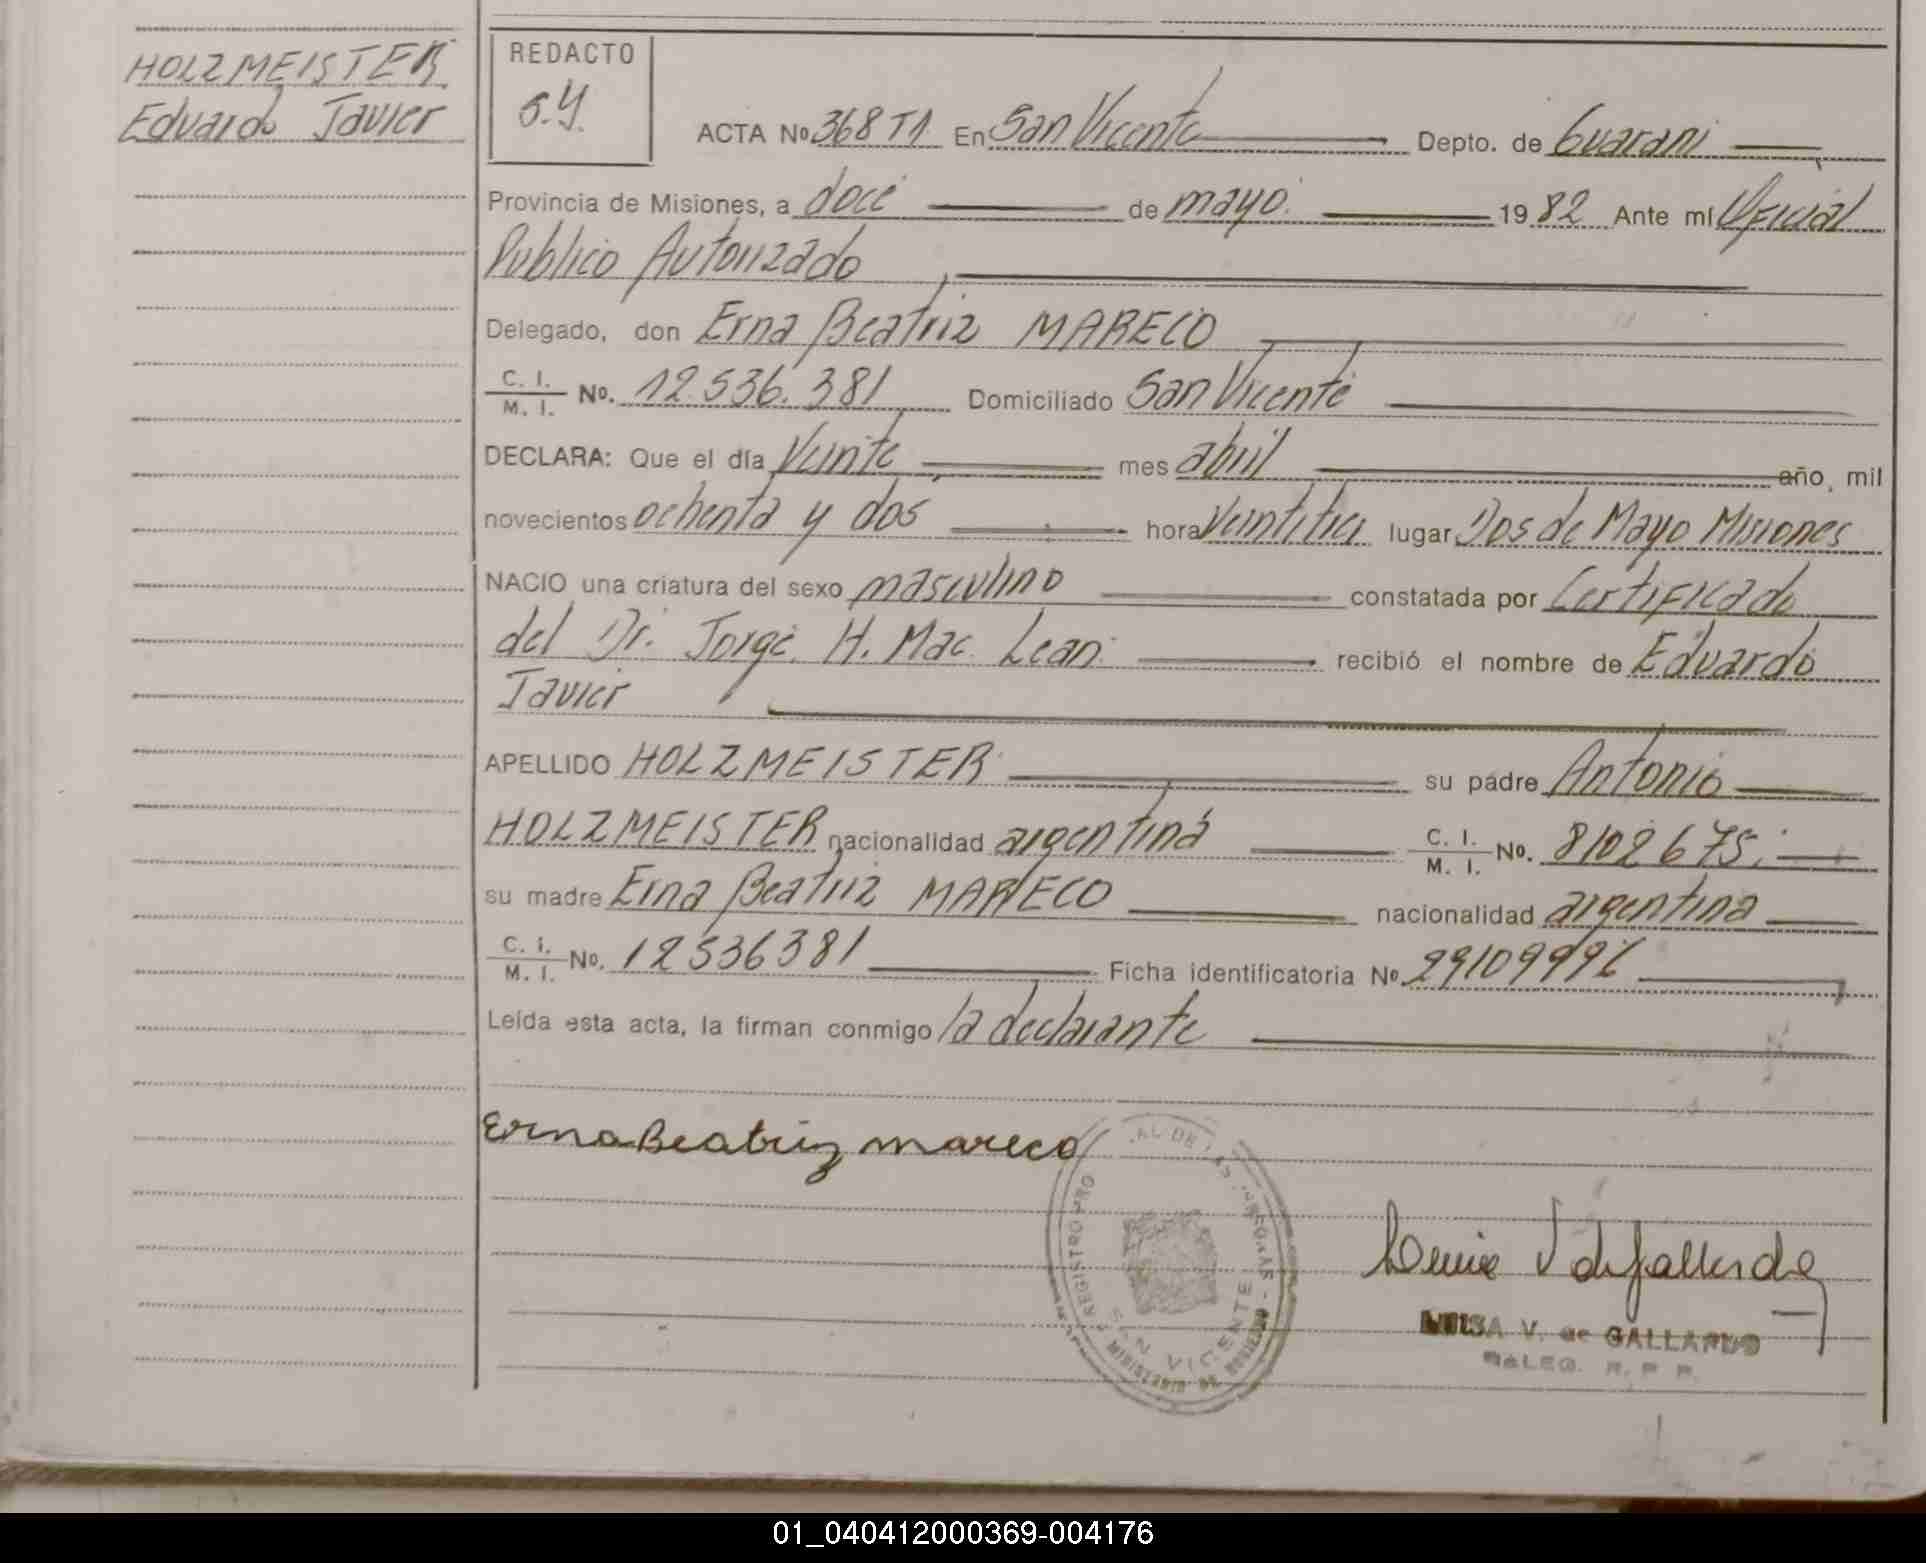 HOLZMEISTER
Eduardo Javier
REDACTO
S.Y.
ACTA Nº 368 T1 En San Vicente Depto. de Guarani
Provincia de Misiones, a doce de mayo 1982 Ante mí Oficial
Publico Autorizado
Delegado, don Erna Beatriz MARECO
C. I.
M. I. Nº. 12.536.381 Domiciliado San Vicente
DECLARA: Que el día Veinte mes abril año, mil
novecientos ochenta y dos hora lugar Dos de Mayo Misiones
NACIO una criatura del sexo masculino constatada por Certificado
del Dr. Jorge H. Mac Lean recibió el nombre de Eduardo
Javier
APELLIDO HOLZMEISTER su padre Antonio
HOLZMEISTER nacionalidad argentina C. I.
M. I. Nº. 8102675
su madre Erna Beatriz MARECO nacionalidad argentina
C. I.
M. I. Nº. 12536381 Ficha identificatoria Nº 29109996
Leída esta acta, la firman conmigo la declarante
Erna Beatriz mareco
REGISTRO PRO AL DE LAS PERSONAS
SAN VICENTE
LUISA V. de GALLARDO
DELEG. R. P. P.
01_040412000369-004176